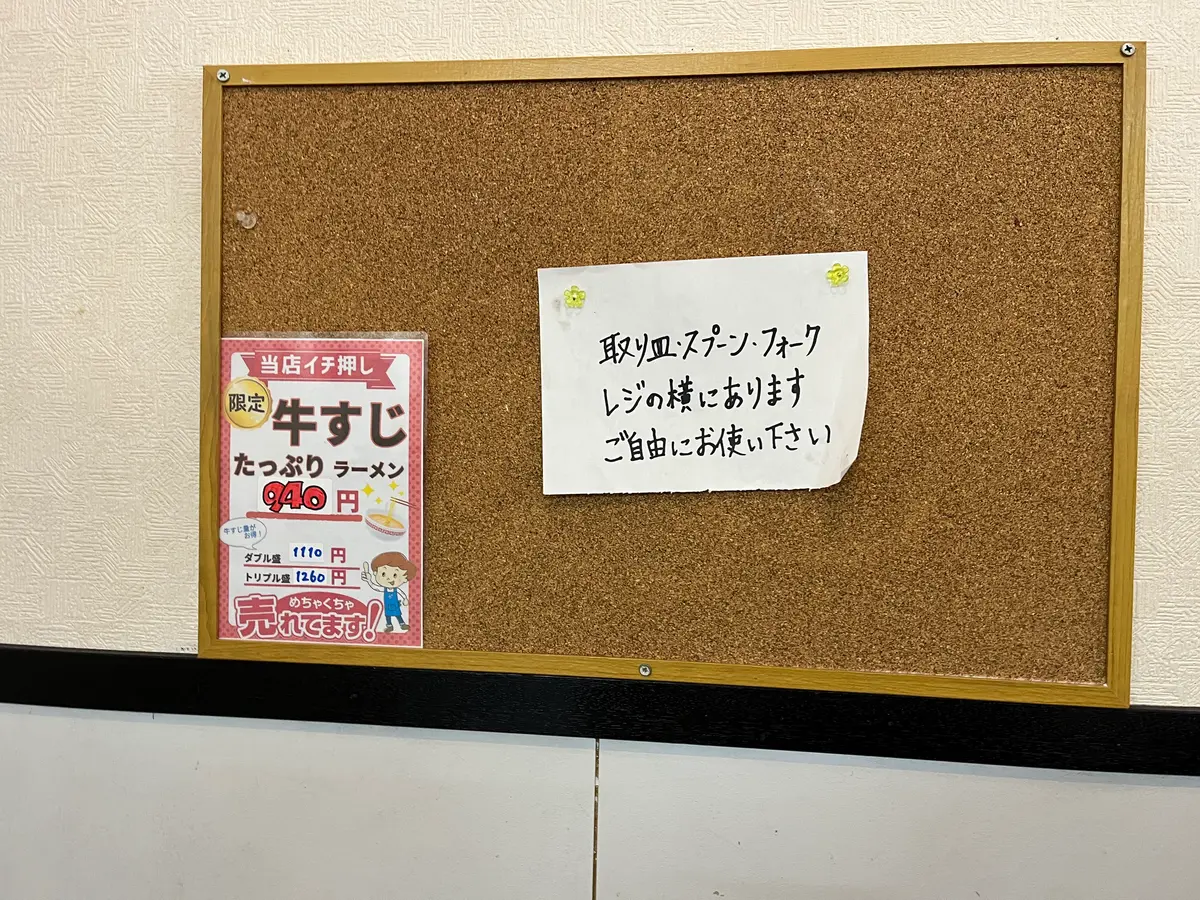 当店イチ押し
限定
牛すじ
たっぷり ラーメン
940円
牛すじ量が
お得!
ダブル盛 1110円
トリプル盛 1260円
めちゃくちゃ
売れてます!
取り皿・スプーン・フォーク
レジの横にあります
ご自由にお使い下さい